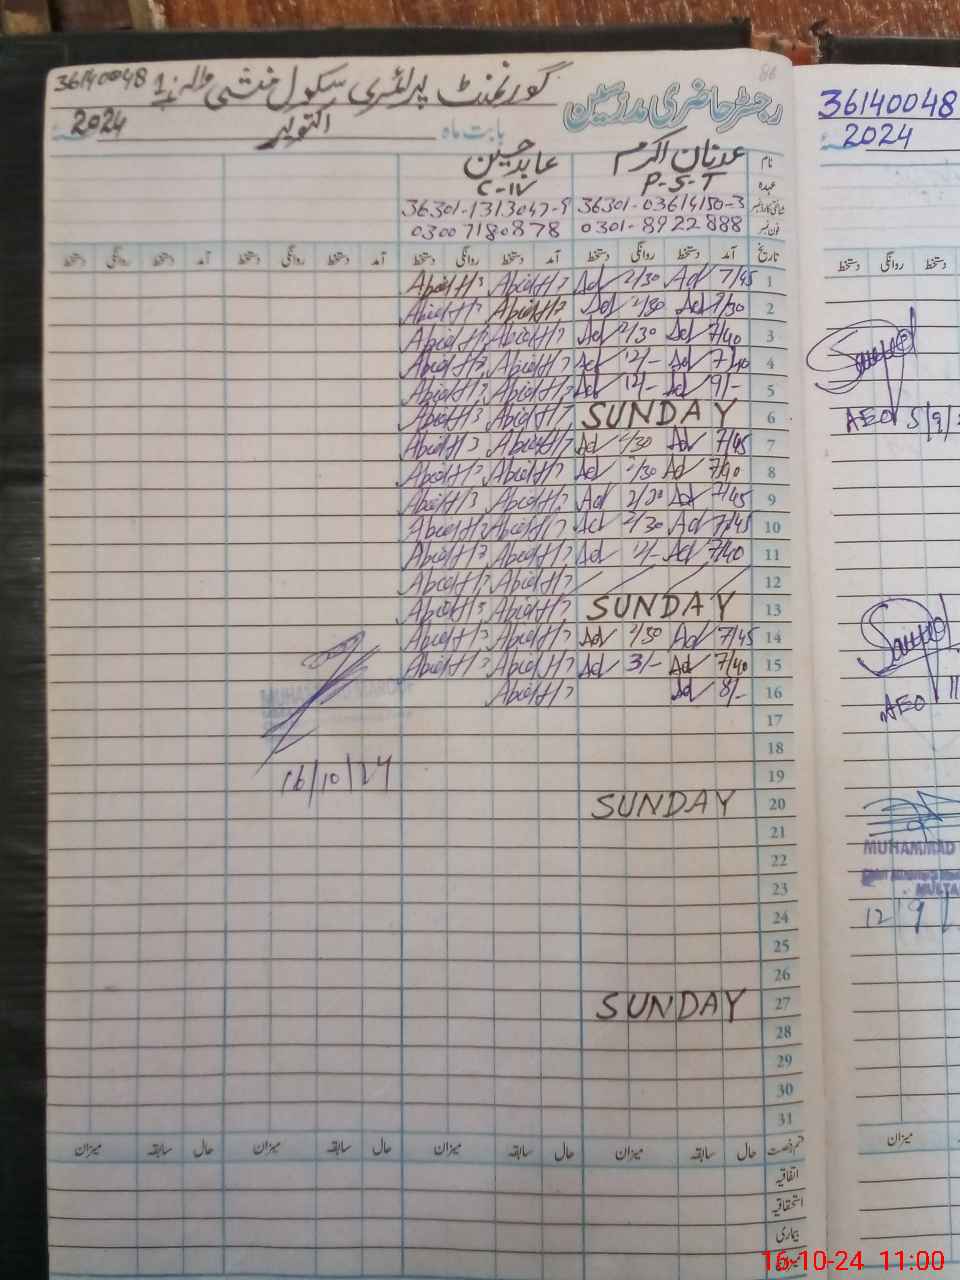 86
رجسٹر حاضری مدرسین گورنمنٹ پرائمری سکول منشی والہ نمبر 1 36140048
بابت ماہ اکتوبر 2024
نام عدنان اکرم عابد حسین
عہدہ P-S-T C-IV
شناختی کارڈ نمبر 36301-03614150-3 36301-1313047-9
فون نمبر 0301-8922888 03007180878
تاریخ آمد دستخط روانگی دستخط آمد دستخط روانگی دستخط آمد دستخط روانگی دستخط آمد دستخط روانگی دستخط
1 7/45 Ad 2/30 Ad Abid H Abid H
2 7/30 Ad 2/30 Ad Abid H Abid H
3 7/40 Ad 2/30 Ad Abid H Abid H
4 7/40 Ad 12/- Ad Abid H Abid H
5 9/- Ad 12/- Ad Abid H Abid H
6 SUNDAY Abid H Abid H
7 7/45 Ad 2/30 Ad Abid H Abid H
8 7/40 Ad 2/30 Ad Abid H Abid H
9 7/45 Ad 2/30 Ad Abid H Abid H
10 7/45 Ad 2/30 Ad Abid H Abid H
11 7/40 Ad 12/- Ad Abid H Abid H
12 Abid H Abid H
13 SUNDAY Abid H Abid H
14 7/45 Ad 2/30 Ad Abid H Abid H
15 7/40 Ad 3/- Ad Abid H Abid H
16 8/- Ad Abid H
17
18
19
16/10/24
20 SUNDAY
21
22
23
24
25
26
27 SUNDAY
28
29
30
31
قسم رخصت حال سابقہ میزان حال سابقہ میزان حال سابقہ میزان حال سابقہ میزان
اتفاقیہ
استحقاقیہ
بیماری
36140048
2024
دستخط روانگی دستخط
AEO 5/9/
AEO 11
MUHAMMAD
MULTA
12/9/
میزان
16-10-24 11:00